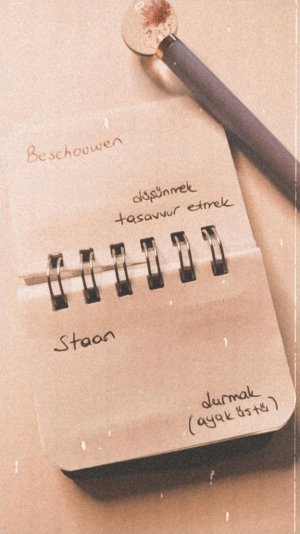 Beschouwen
düşünmek
tasavvur etmek
Staan
durmak
(ayak üstü)